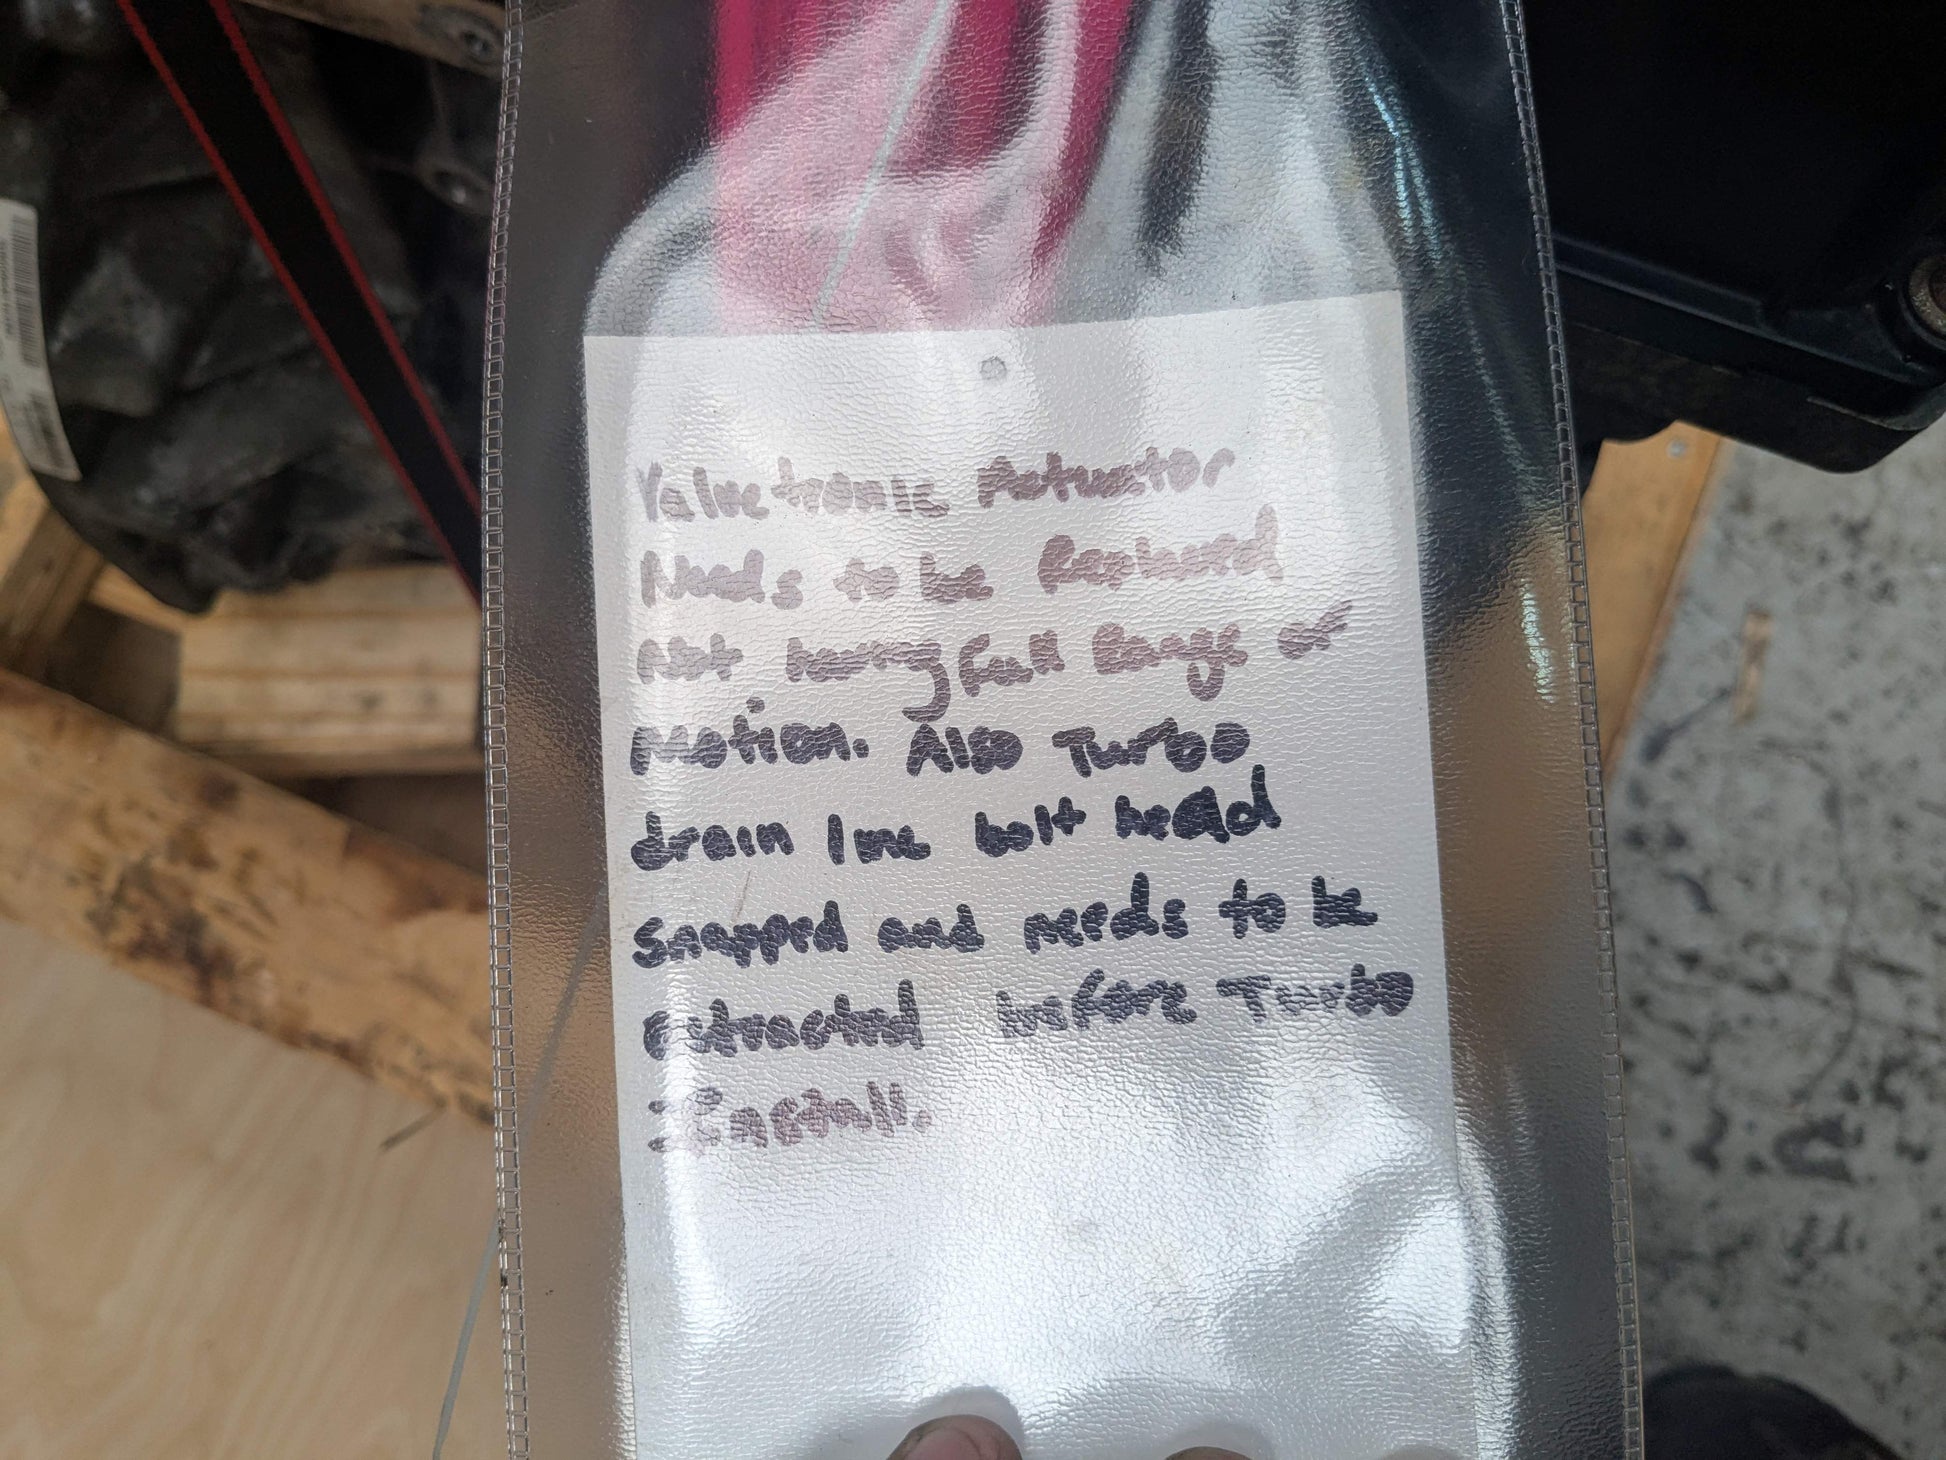 Valvetronic Actuator
Needs to be Replaced
Not having full Range of
Motion. Also Turbo
drain line bolt head
snapped and needs to be
extracted before Turbo
Install.